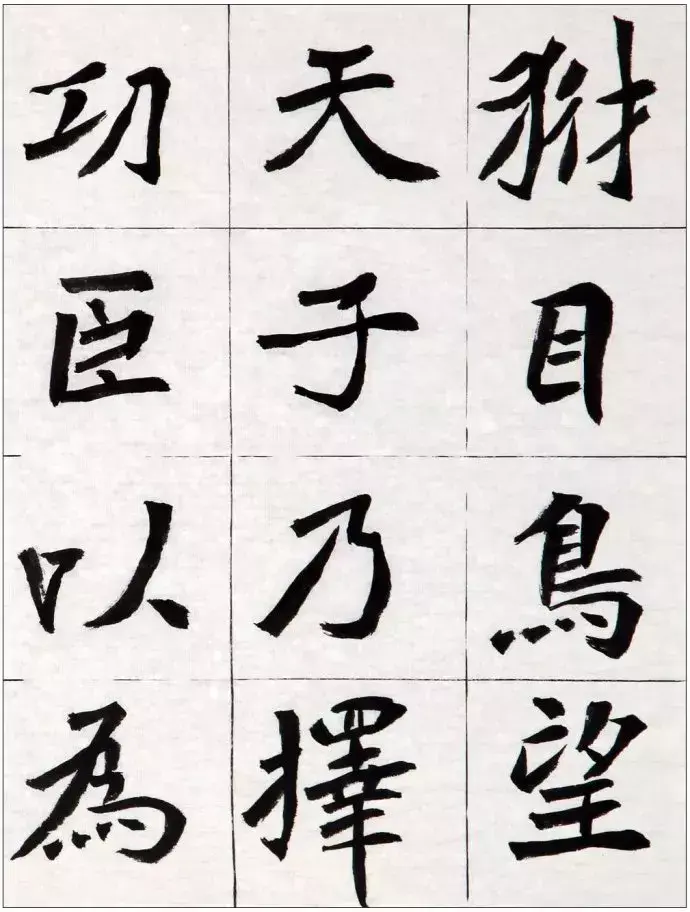 目鳥望
天子乃擇
功臣以為